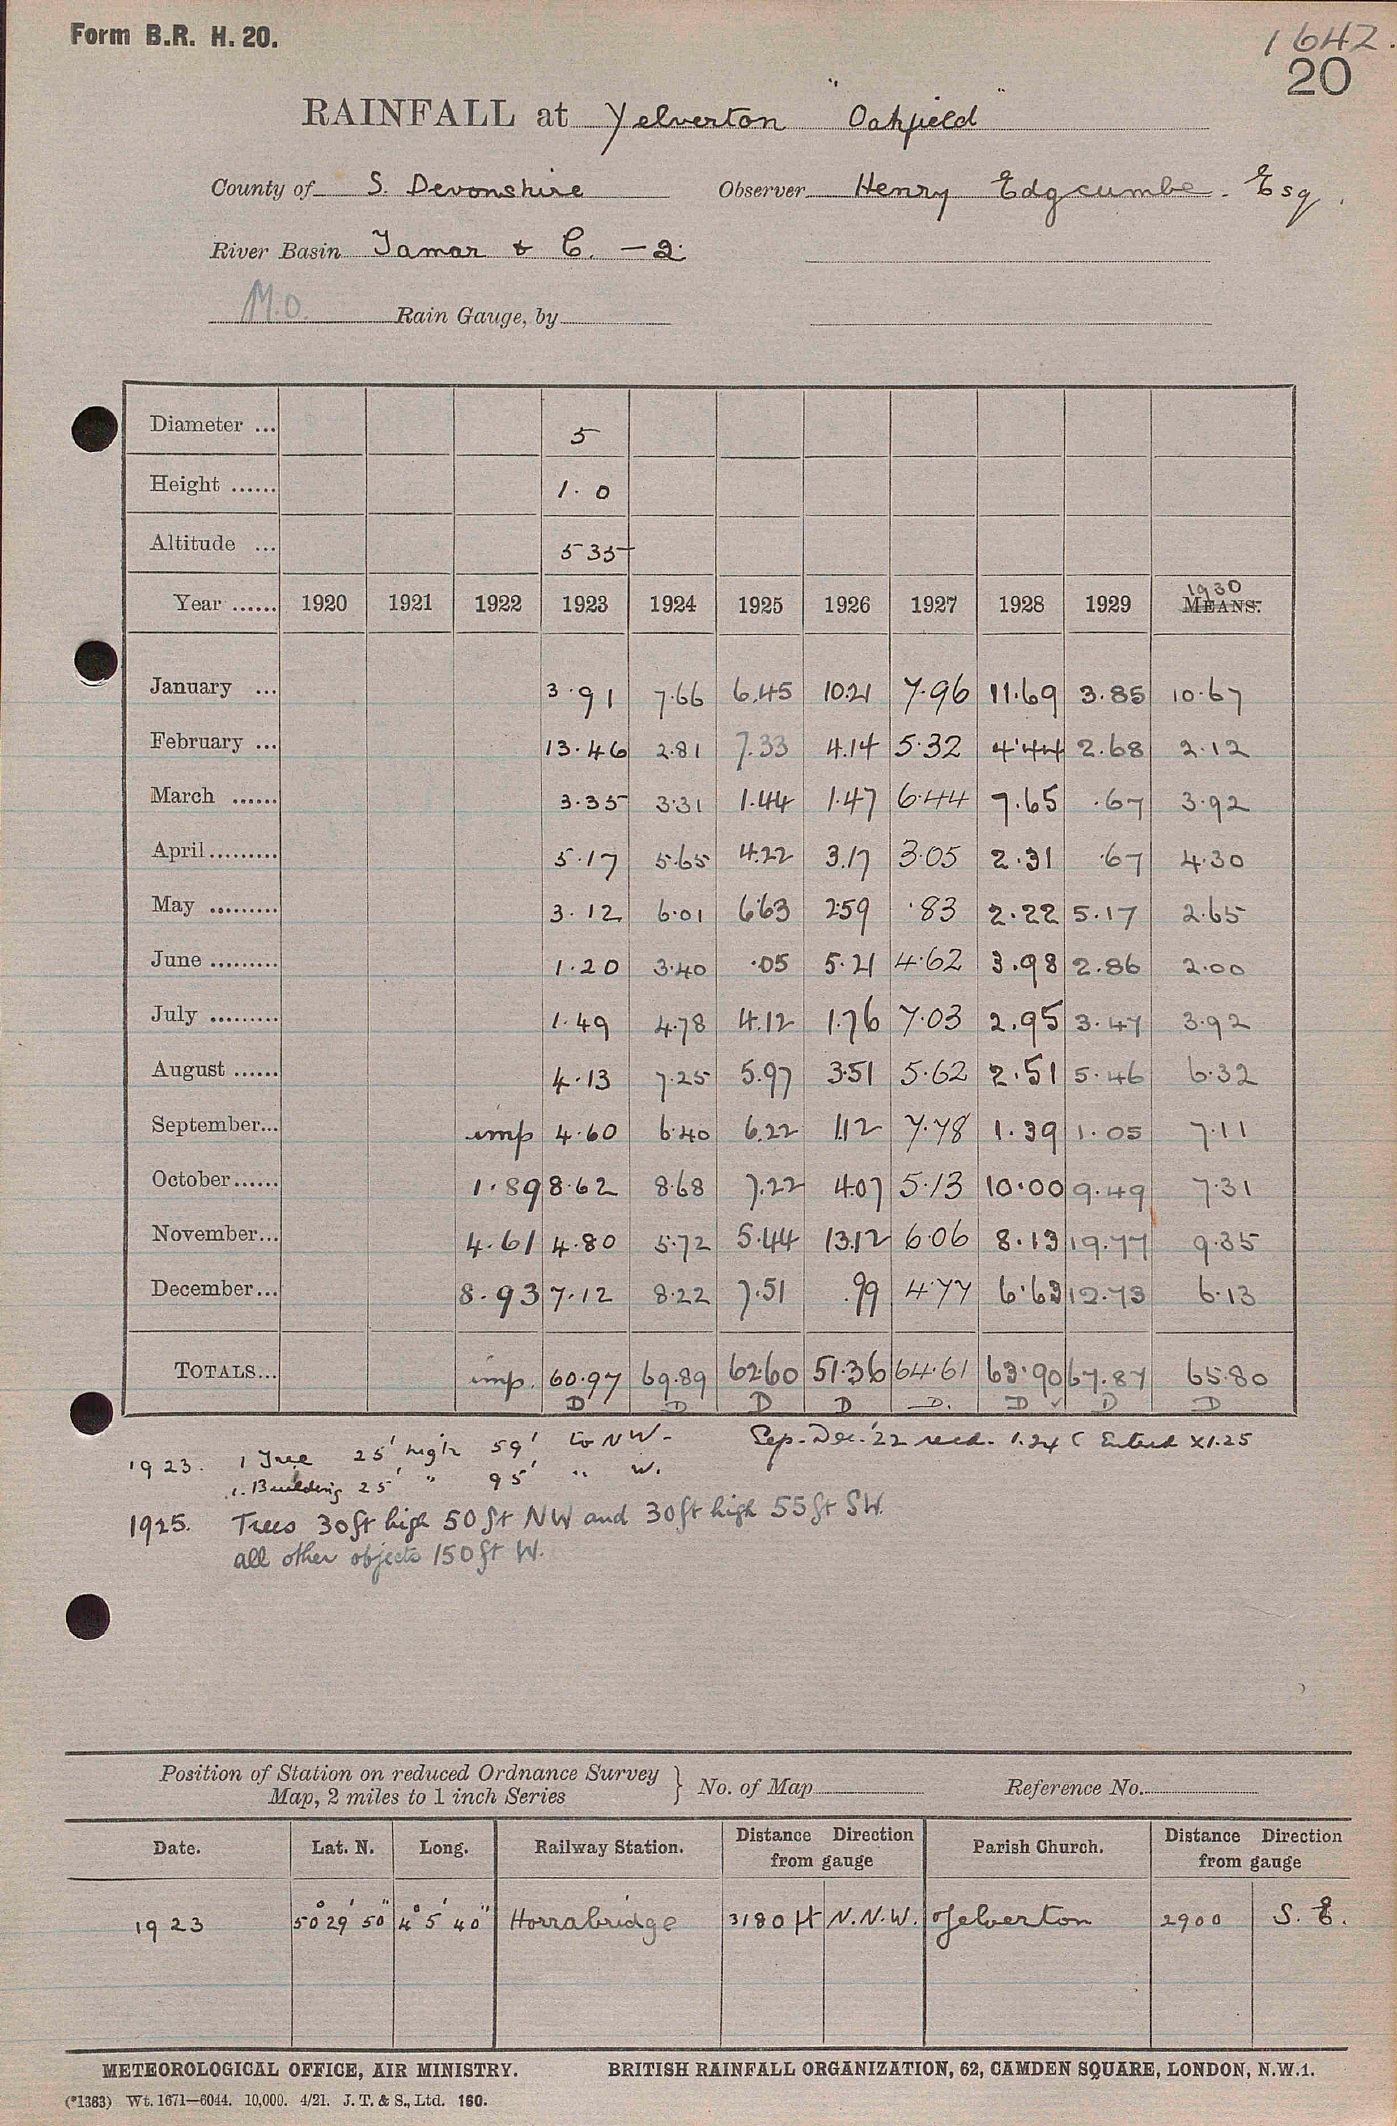 Form B.R. H. 20.
1642.
20
RAINFALL at Yelverton "Oakfield"
County of S. Devonshire Observer Henry Edgcumbe. Esq.
River Basin Tamar & C. — 2.
M.O. Rain Gauge, by
Diameter ... 5
Height ...... 1.0
Altitude ... 535
Year ...... 1920 1921 1922 1923 1924 1925 1926 1927 1928 1929 1930 MEANS.
January ... 3.91 7.66 6.45 10.21 7.96 11.69 3.85 10.67
February ... 13.46 2.81 7.33 4.14 5.32 4.44 2.68 2.12
March ...... 3.35 3.31 1.44 1.47 6.44 7.65 .67 3.92
April......... 5.17 5.65 4.22 3.17 3.05 2.31 .67 4.30
May ......... 3.12 6.01 6.63 2.59 .83 2.22 5.17 2.65
June ......... 1.20 3.40 .05 5.21 4.62 3.98 2.86 2.00
July ......... 1.49 4.78 4.12 1.76 7.03 2.95 3.47 3.92
August ...... 4.13 7.25 5.97 3.51 5.62 2.51 5.46 6.32
September... imp 4.60 6.40 6.22 1.12 7.78 1.39 1.05 7.11
October...... 1.89 8.62 8.68 7.22 4.07 5.13 10.00 9.49 7.31
November... 4.61 4.80 5.72 5.44 13.12 6.06 8.13 19.77 9.35
December... 8.93 7.12 8.22 7.51 .99 4.77 6.63 12.73 6.13
TOTALS... imp. 60.97 69.89 62.60 51.36 64.61 63.90 67.87 65.80
D D D D D. D ✓ D D
1923. 1 Tree 25' high 59' to NW. Sep.-Dec. '22 recd. 1.24 ( Entered X1.25
1. Building 25' " 95' " W.
1925. Trees 30ft high 50ft NW and 30ft high 55ft SW.
all other objects 150ft W.
Position of Station on reduced Ordnance Survey Map, 2 miles to 1 inch Series } No. of Map Reference No.
Date. Lat. N. Long. Railway Station. Distance Direction from gauge Parish Church. Distance Direction from gauge
1923 50° 29' 50" 4° 5' 40" Horrabridge 3180 ft N.N.W. Yelverton 2900 S. E.
METEOROLOGICAL OFFICE, AIR MINISTRY. BRITISH RAINFALL ORGANIZATION, 62, CAMDEN SQUARE, LONDON, N.W.1.
(*1383) Wt. 1671—6044. 10,000. 4/21. J. T. & S., Ltd. 160.